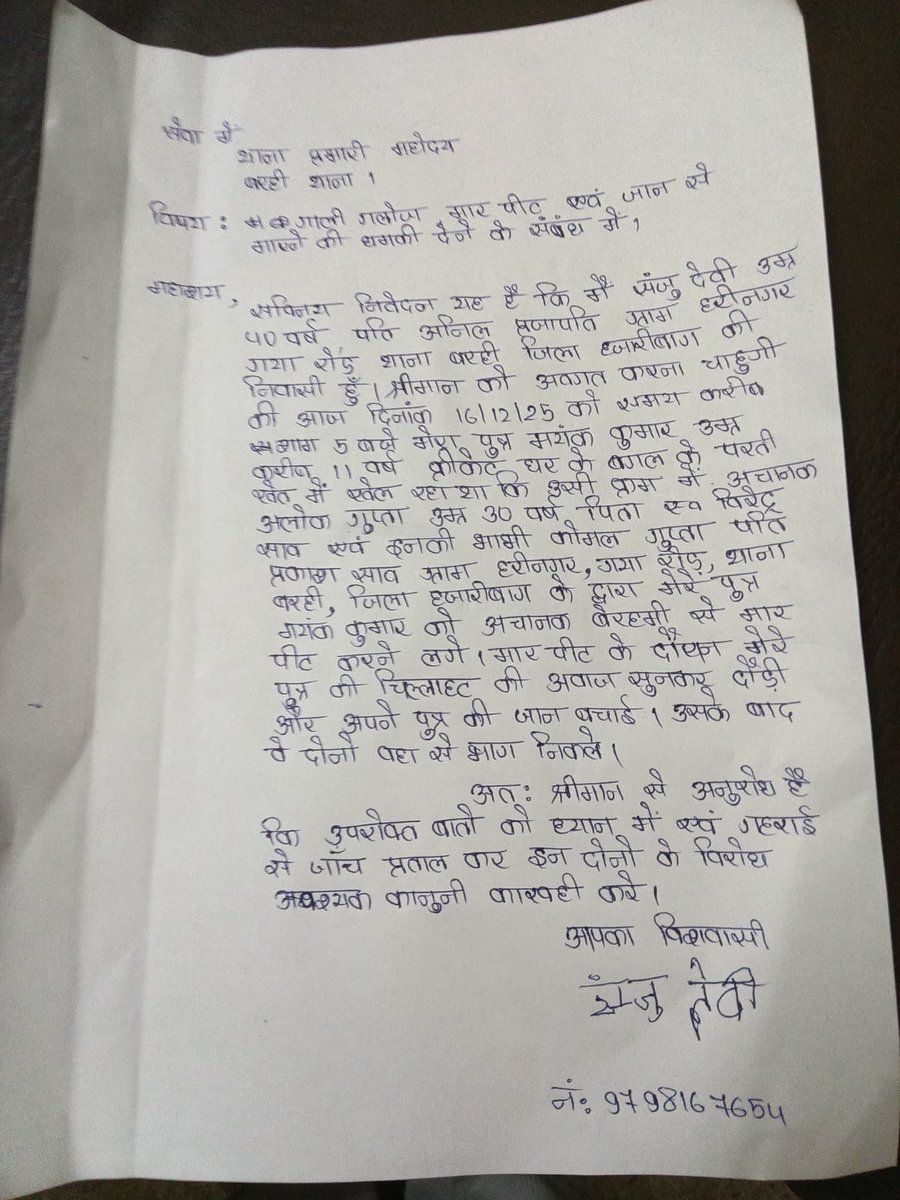 सेवा में
थाना प्रभारी महोदय
बरही थाना ।
विषय : गाली गलौज मार पीट एवं जान से
मारने की धमकी देने के संबंध में ।
महाशय,
सविनय निवेदन यह है कि मैं संजु देवी उम्र
40 वर्ष पति अनिल प्रजापति ग्राम हरीनगर
गया रोड़ थाना बरही जिला हजारीबाग की
निवासी हुँ । श्रीमान को अवगत करना चाहुगी
की आज दिनांक 16/12/25 को समय करीब
5 बजे मेरा पुत्र मयंक कुमार उम्र
करीब 11 वर्ष क्रीकेट घर के बगल के परती
खेत में खेल रहा था कि उसी क्रम में अचानक
अलोक गुप्ता उम्र 30 वर्ष पिता स्व विरेंद्र
साव एवं इनकी भाभी कोमल गुप्ता पति
प्रकाश साव ग्राम हरीनगर, गया रोड़, थाना
बरही, जिला हजारीबाग के द्वारा मेरे पुत्र
मयंक कुमार को अचानक बेरहमी से मार
पीट करने लगे । मार पीट के दौरान मेरे
पुत्र की चिल्लाहट की अवाज सुनकर दौड़ी
और अपने पुत्र की जान बचाई । उसके बाद
वे दोनो वहा से भाग निकले ।
अत: श्रीमान से अनुरोध है
कि उपरोक्त बातो को ध्यान में एवं गहराई
से जाँच प्रताल कर इन दोनो के विरोध
अवश्यक कानुनी कारवही करे ।
आपका विशवासी
संजु देवी
नं: 9798167654